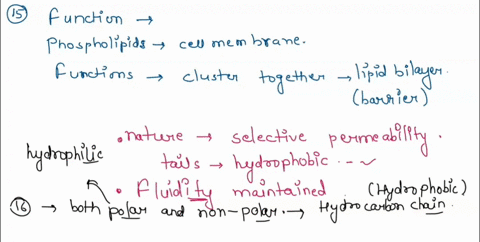 (15) Function →
Phospholipids → cell membrane.
Functions → cluster together → lipid bilayer.
(barrier)
• nature → selective permeability.
hydrophilic
tails → hydrophobic --
• Fluidity maintained (Hydrophobic)
(16) → both polar and non-polar. → Hydrocarbon chain.